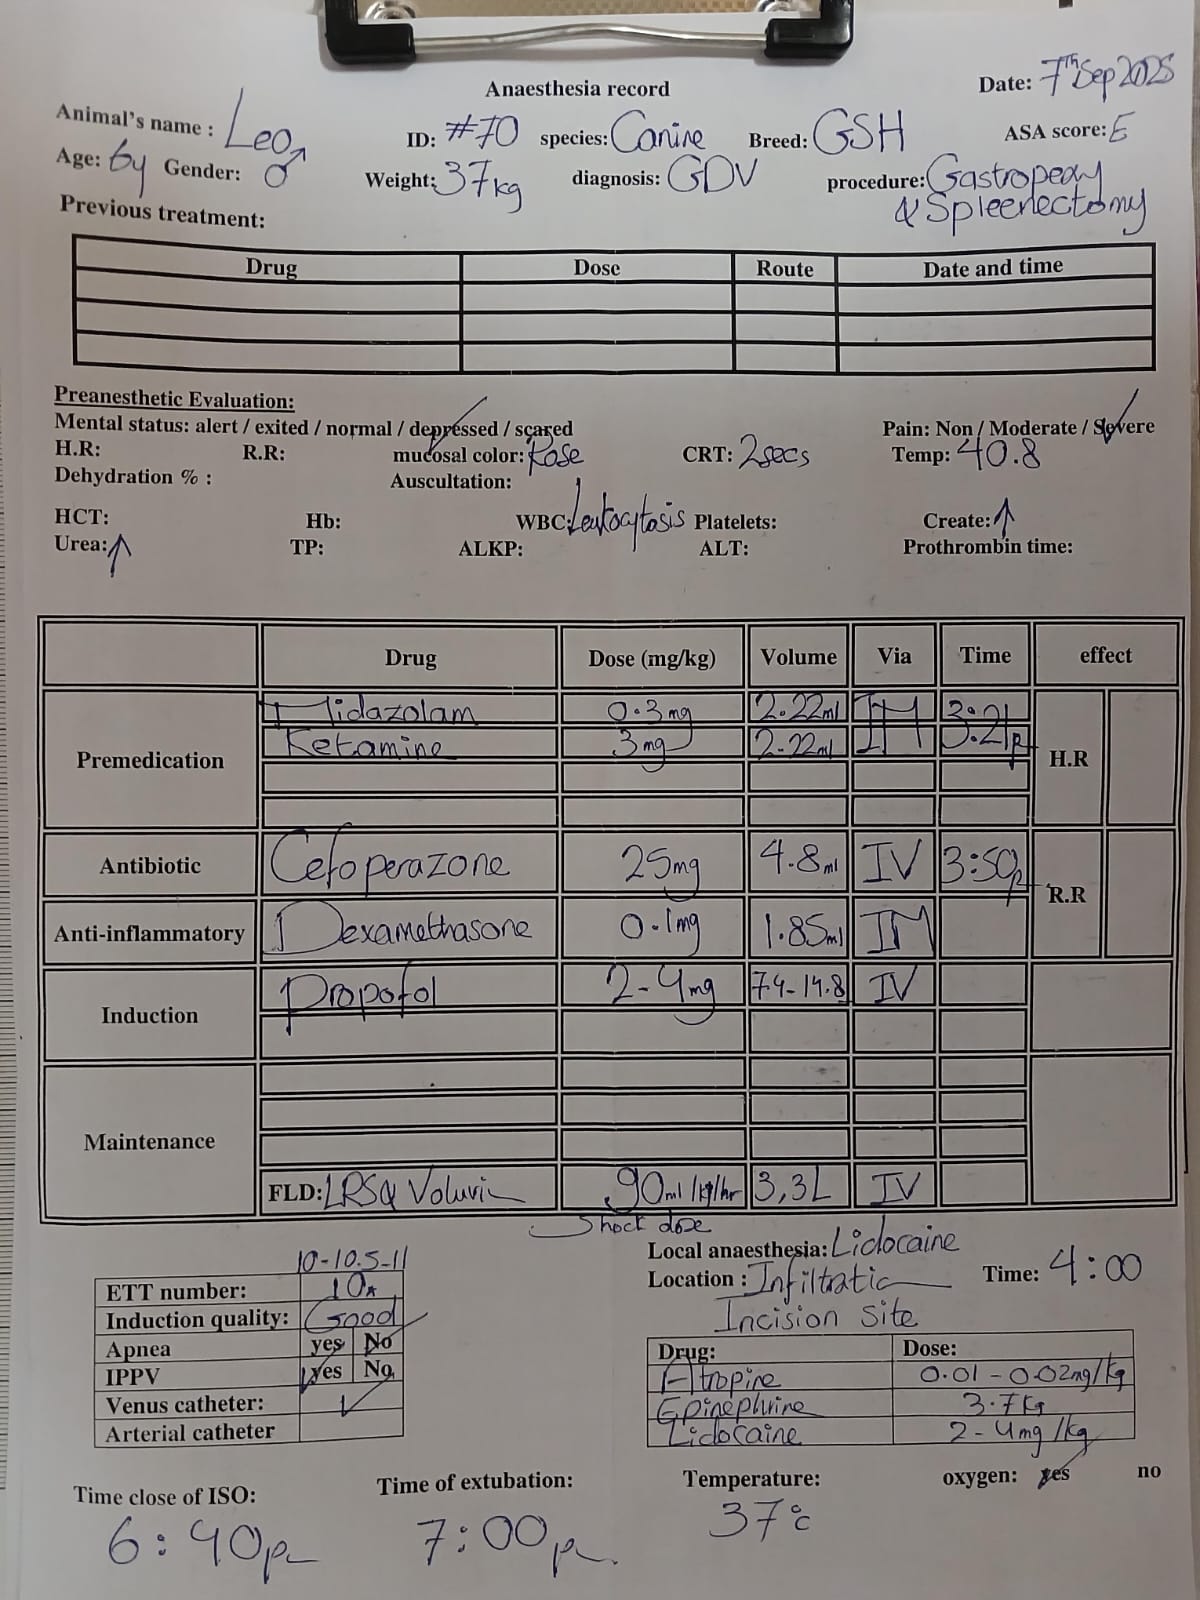 Anaesthesia record
Date: 7th Sep 2025
Animal's name : Leo ♂ ID: #70 species: Canine Breed: GSH ASA score: E
Age: 6y Gender: ♂ Weight: 37kg diagnosis: GDV procedure: Gastropexy
& Spleenectomy
Previous treatment:
Drug Dose Route Date and time
Preanesthetic Evaluation:
Mental status: alert / exited / normal / depressed / scared Pain: Non / Moderate / Severe
H.R: R.R: mucosal color: Rose CRT: 2secs Temp: 40.8
Dehydration % : Auscultation:
HCT: Hb: WBC: Leukocytosis Platelets: Create: ↑
Urea: ↑ TP: ALKP: ALT: Prothrombin time:
Drug Dose (mg/kg) Volume Via Time effect
Premedication
Midazolam 0.3mg 2.22ml IM 3:21
Ketamine 3mg 2.22ml IM 3:21p
H.R
Antibiotic Cefoperazone 25mg 4.8ml IV 3:50p
R.R
Anti-inflammatory Dexamethasone 0.1mg 1.85ml IM
Induction Propofol 2-4mg 7.4-14.8 IV
Maintenance
FLD: LRS & Voluvin 90ml/kg/hr 3,3L IV
Shock dose
10-10.5-11
ETT number: 10
Induction quality: Good
Apnea yes No
IPPV yes No
Venus catheter: ✓
Arterial catheter
Local anaesthesia: Lidocaine
Location : Infiltratic Time: 4:00
Incision site
Drug: Dose:
Atropine 0.01 - 0.02mg/kg
Epinephrine 3.7kg
Lidocaine 2-4mg/kg
Time close of ISO: Time of extubation: Temperature: oxygen: yes no
6:40p 7:00p 37°c